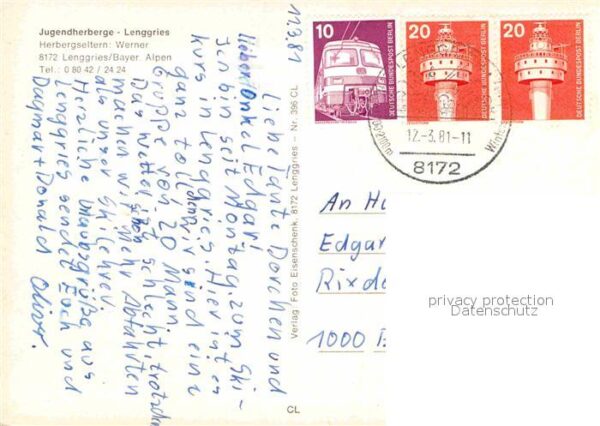 Jugendherberge - Lenggries
Herbergseltern: Werner
8172 Lenggries/Bayer. Alpen
Tel.: 0 80 42 / 24 24
11.3.81
Liebe Tante Dorchen und
lieber Onkel Edgar!
Ich bin seit Montag zum Ski-
kurs in Lenggries. Hier ist es
ganz toll, denn wir sind eine
Gruppe von 20 Mann.
Das Wetter ist schlecht, trotzdem
machen wir mehr Abfahrten
als unser Skilehrer.
Herzliche Urlaubsgrüße aus
Lenggries sendet Euch und
Dagmar + Donald Oliver.
CL
Verlag Foto Eisenschenk, 8172 Lenggries - Nr. 396 CL
10
DEUTSCHE BUNDESPOST BERLIN
20
DEUTSCHE BUNDESPOST BERLIN
20
DEUTSCHE BUNDESPOST BERLIN
12.-3.81-11
8172
An
Edgar
1000
privacy protection
Datenschutz